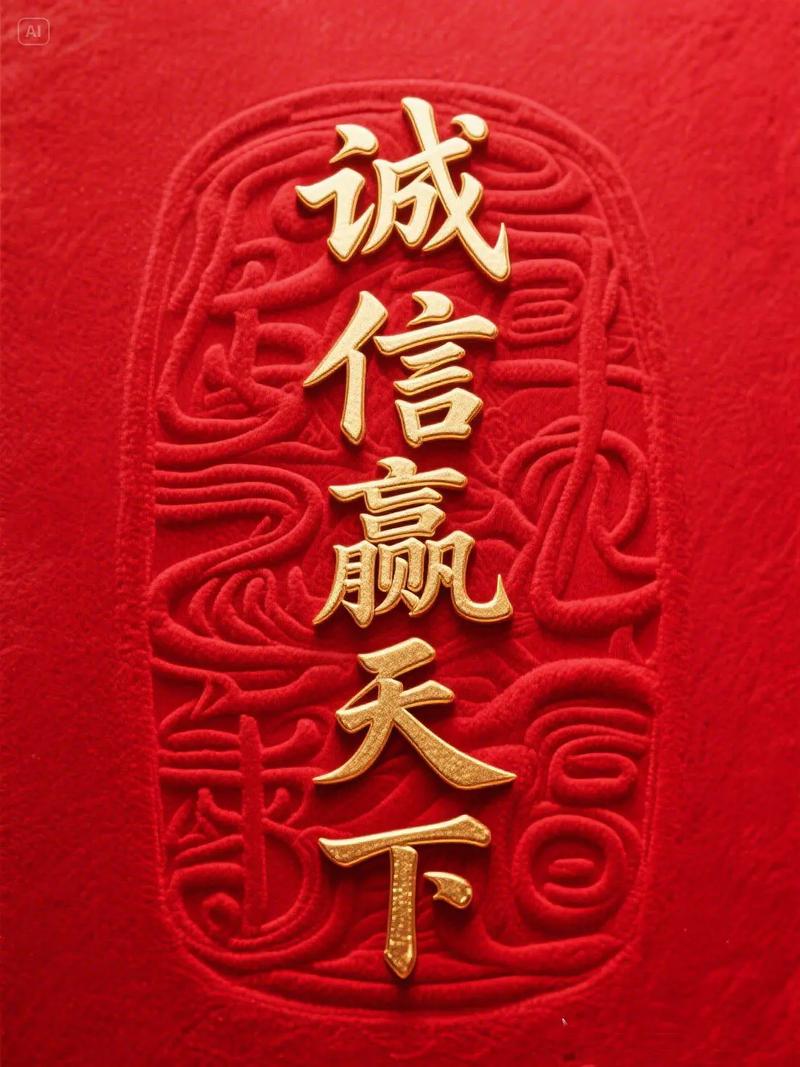 AI
诚信赢天下